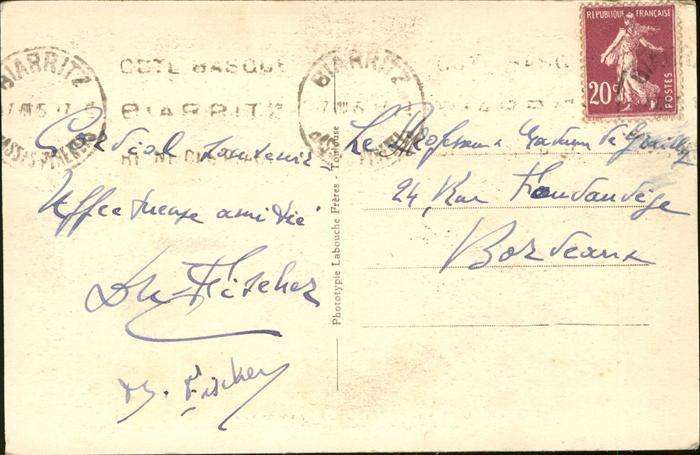 BIARRITZ
COTE BASQUE
BIARRITZ
BIARRITZ
REPUBLIQUE FRANÇAISE
20c
POSTES
Cordial souvenir
Affectueuse amitié
Dr Fischer
Fischer
Phototypie Labouche Frères - Toulouse
Le Professeur
24, Rue Fondaudège
Bordeaux